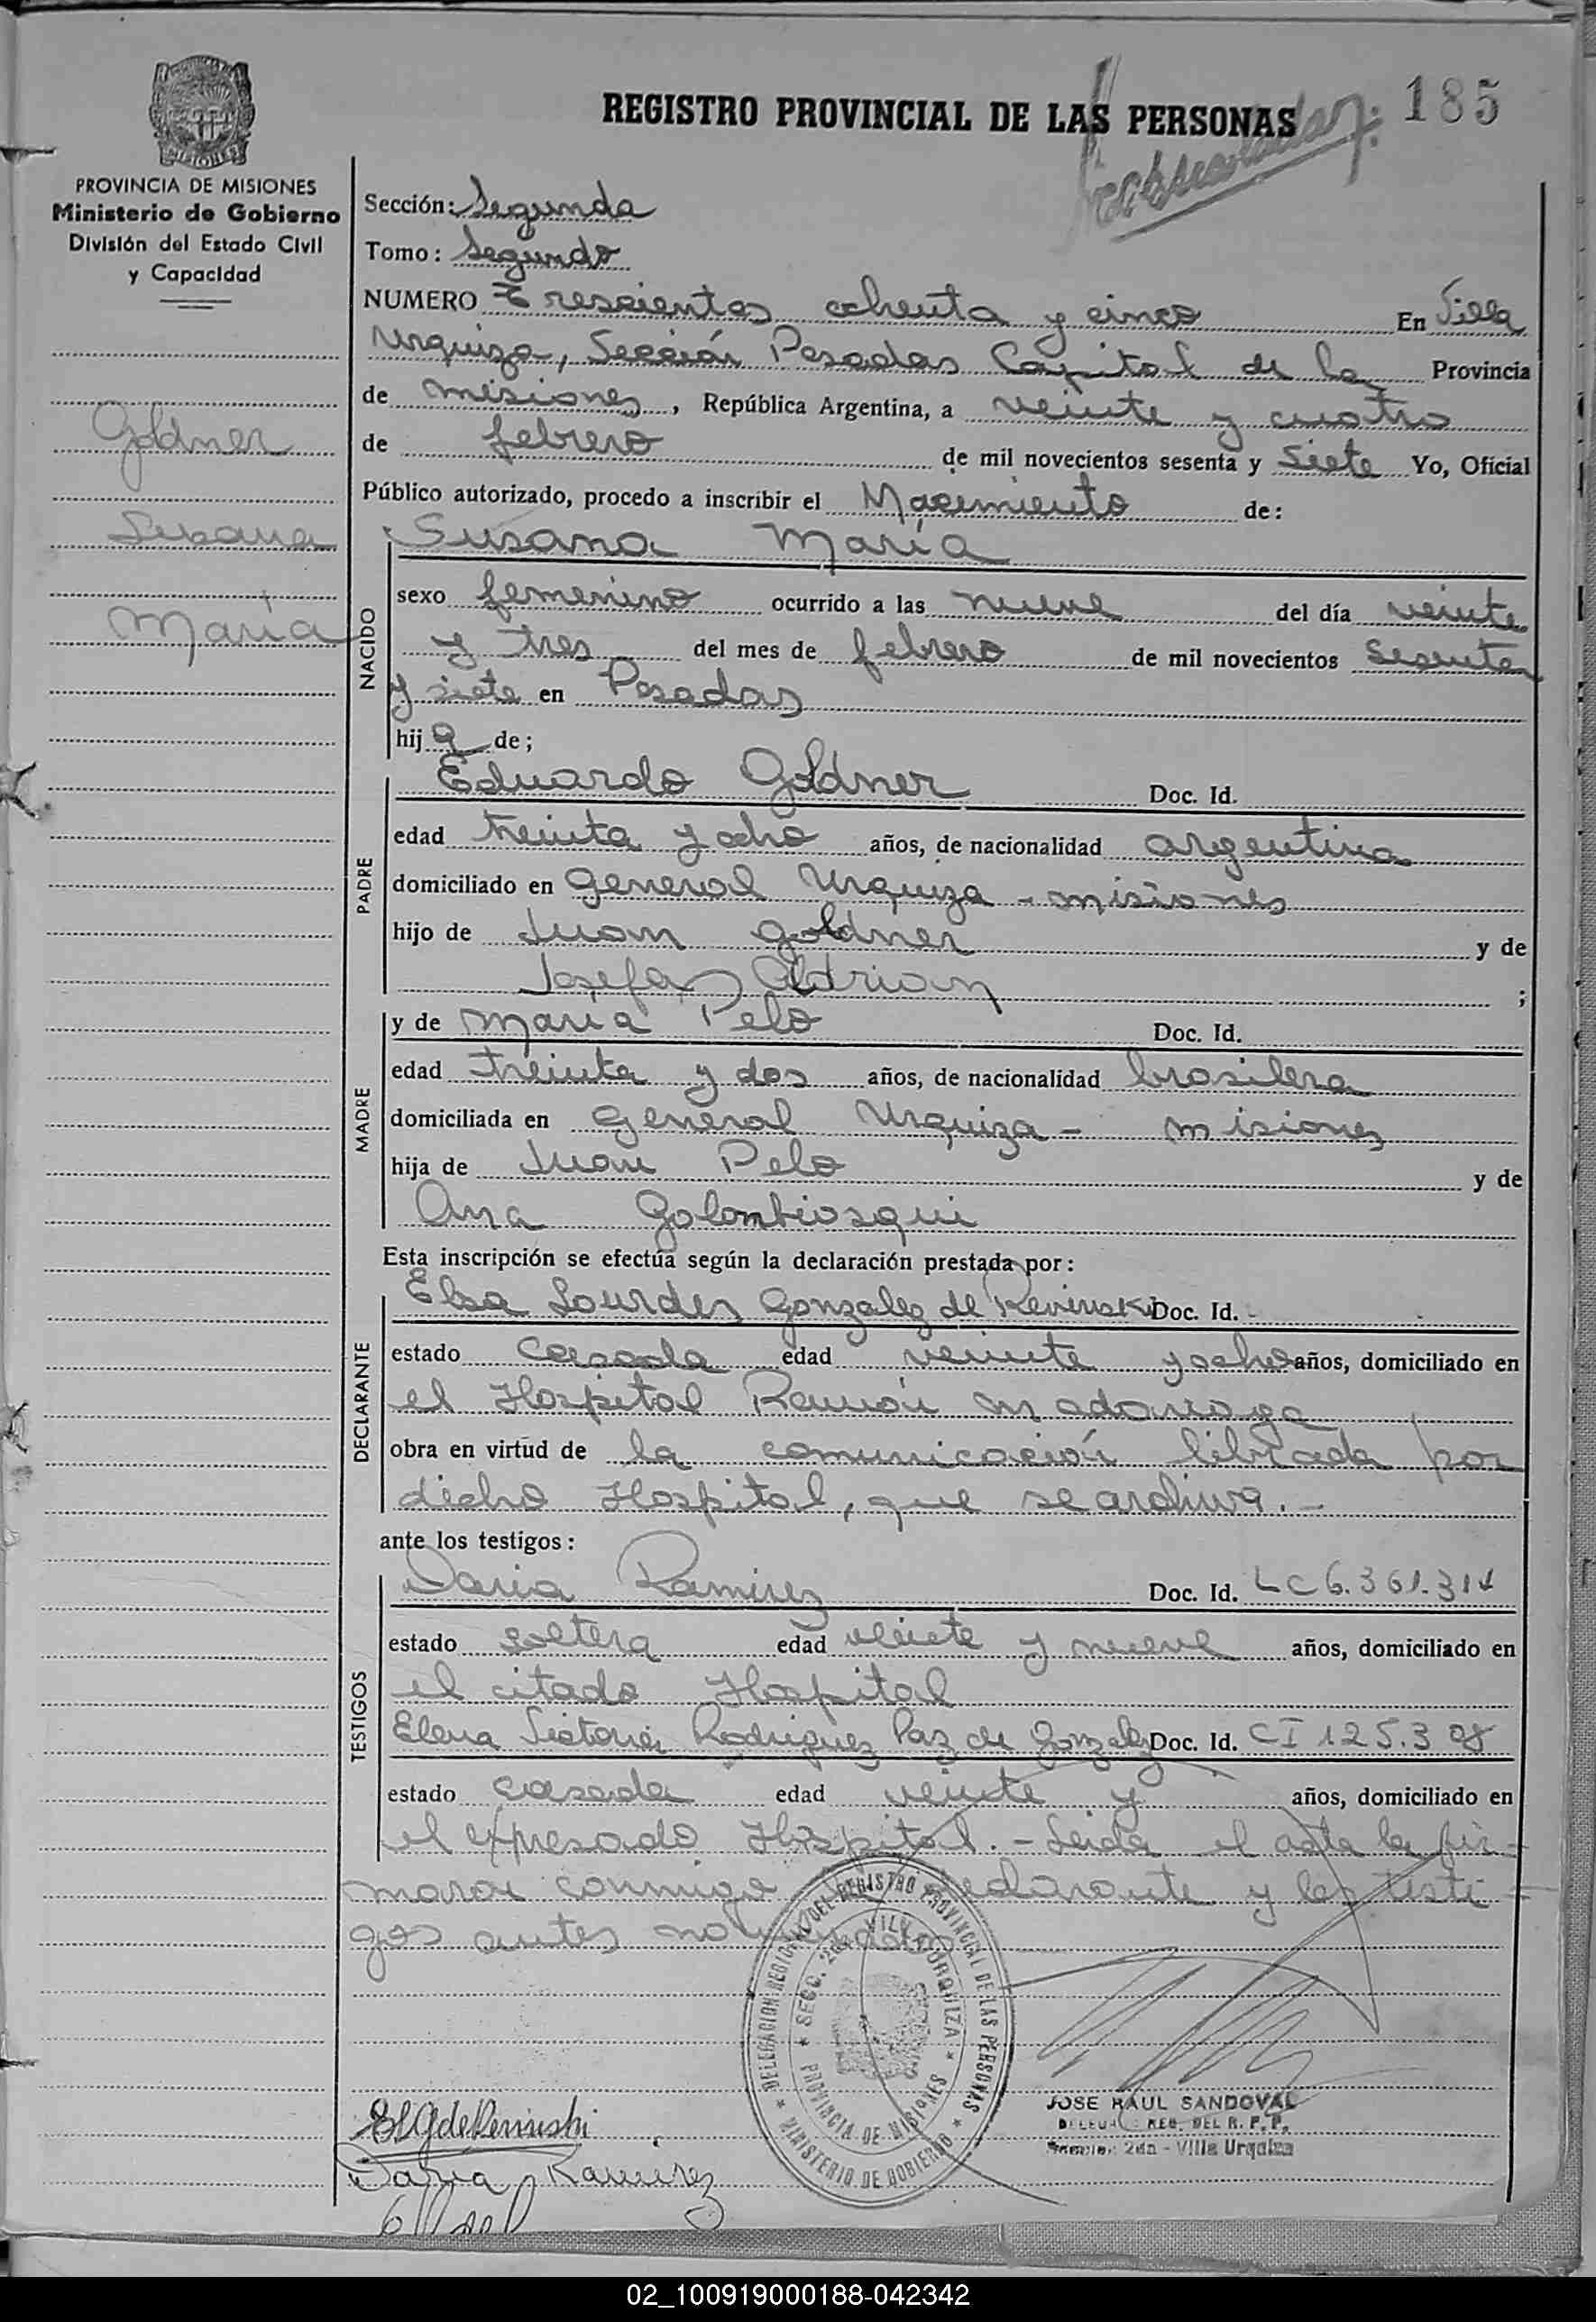 REGISTRO PROVINCIAL DE LAS PERSONAS
185
MISIONES
PROVINCIA DE MISIONES
Ministerio de Gobierno
División del Estado Civil
y Capacidad
Goldner
Susana
María
Sección: Segunda
Tomo: Segundo
NUMERO Trescientos ochenta y cinco En Villa
Urquiza, Sección Posadas Capital de la Provincia
de misiones, República Argentina, a veinte y cuatro
de febrero de mil novecientos sesenta y Siete Yo, Oficial
Público autorizado, procedo a inscribir el Nacimiento de:
NACIDO
Susana María
sexo femenino ocurrido a las nueve del día veinte
y tres del mes de febrero de mil novecientos Sesenta
y siete en Posadas
hija de;
PADRE
Eduardo Goldner Doc. Id.
edad treinta y ocho años, de nacionalidad argentina
domiciliado en General Urquiza - misiones
hijo de Juan Goldner y de
Josefa Adrian ;
MADRE
y de María Pelo Doc. Id.
edad treinta y dos años, de nacionalidad brasilera
domiciliada en General Urquiza - misiones
hija de Juan Pelo y de
Ana Golombiosqui
Esta inscripción se efectúa según la declaración prestada por:
DECLARANTE
Elsa Lourdes Gonzalez de Doc. Id. -
estado Casada edad veinte y ocho años, domiciliado en
el Hospital Ramón Madariaga
obra en virtud de la comunicación librada por
dicho Hospital, que se archiva. -
ante los testigos:
TESTIGOS
Daria Ramirez Doc. Id. LC 6.361.314
estado soltera edad veinte y nueve años, domiciliado en
el citado Hospital
Elena Victoria Rodriguez Paz de Gonzalez Doc. Id. CI 125.308
estado casada edad veinte y años, domiciliado en
el expresado Hospital. - Leida el acta la fir-
maron conmigo declarante y los testi-
gos antes
DELEGACION REGIONAL DEL REGISTRO PROVINCIAL DE LAS PERSONAS
* MINISTERIO DE GOBIERNO *
* SECC. 2da VILLA URQUIZA *
PROVINCIA DE MISIONES
JOSE RAUL SANDOVAL
REG. DEL R. P. P.
2da - Villa Urquiza
Daria Ramirez
02_100919000188-042342